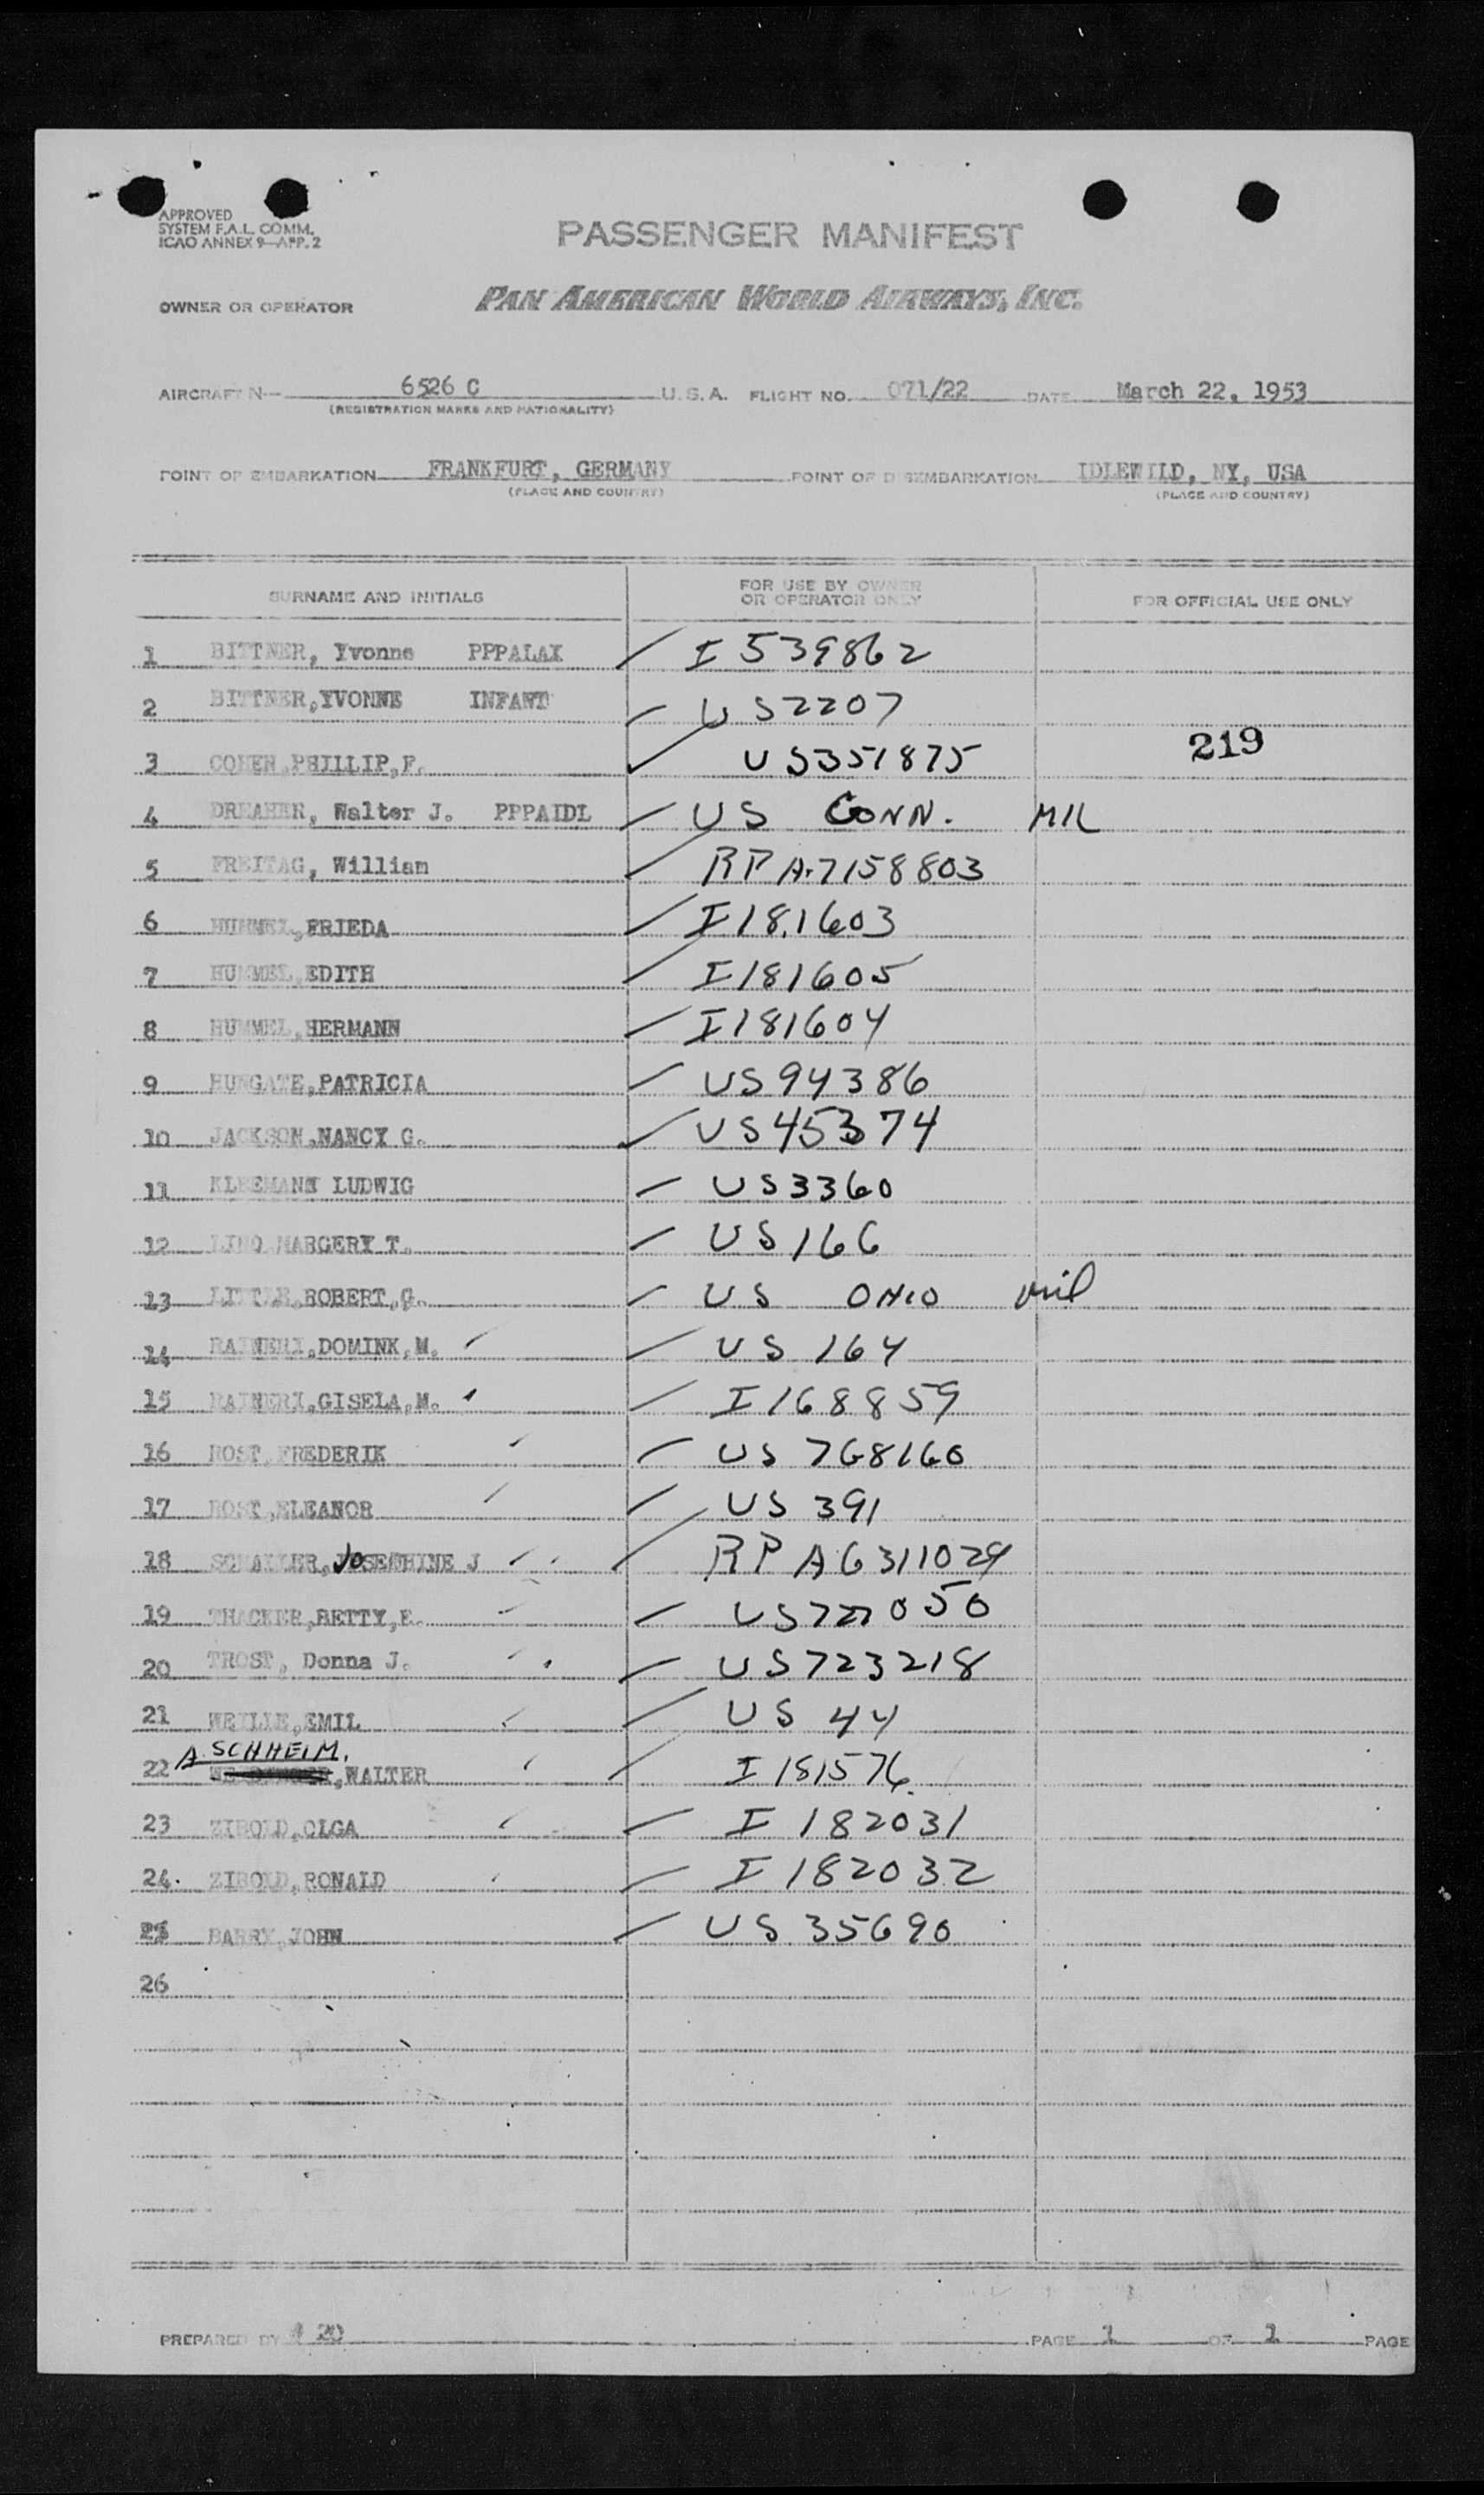 APPROVED
SYSTEM F.A.L. COMM.
ICAO ANNEX 9—APP. 2
PASSENGER MANIFEST
OWNER OR OPERATOR PAN AMERICAN WORLD AIRWAYS, INC.
AIRCRAFT N— 6526 C U.S.A. FLIGHT NO. 071/22 DATE March 22, 1953
(REGISTRATION MARKS AND NATIONALITY)
POINT OF EMBARKATION FRANKFURT, GERMANY POINT OF DISEMBARKATION IDLEWILD, NY, USA
(PLACE AND COUNTRY) (PLACE AND COUNTRY)
SURNAME AND INITIALS FOR USE BY OWNER OR OPERATOR ONLY FOR OFFICIAL USE ONLY
1 BITTNER, Yvonne PPPALAX I 539862
2 BITTNER,YVONNE INFANT US2207
219
3 COHEN,PHILLIP,F. US351875
4 DREAHER, Walter J. PPPAIDL US CONN. MIL
5 FREITAG, William RPA-7158803
6 HUMMEL,FRIEDA I181603
7 HUMMEL,EDITH I181605
8 HUMMEL,HERMANN I181604
9 HUNGATE,PATRICIA US94386
10 JACKSON,NANCY G. US45374
11 KLEEMANN LUDWIG US3360
12 MARGERY T. US166
13 LITTLE,ROBERT,G. US OHIO mil
14 RAINERI,DOMINK,M. US 164
15 RAINERI,GISELA,M. I168859
16 ROST,FREDERIK US 768160
17 ROST,ELEANOR US 391
18 SCHALLER,JOSEPHINE J RPA6311029
19 THACKER,BETTY,E. US727050
20 TROST, Donna J. US723218
21 EMIL US 44
A SCHHEIM.
22 ,WALTER I 181576
23 ZIBOLD,OLGA I 182031
24. ZIBOLD,RONALD I 182032
25 BARRY,JOHN US 35690
26
PREPARED BY # 20 PAGE 1 OF 1 PAGE